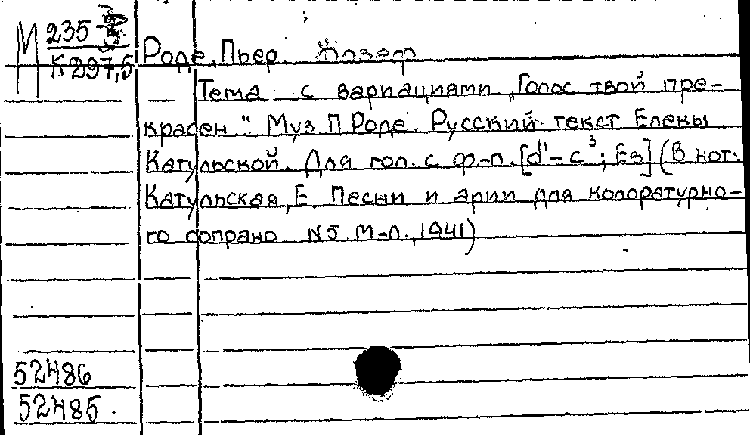 М 235-3
К 297,5
Роде, Пьер. Жозеф
Тема с вариациями „Голос твой пре-
красен". Муз. П. Роде. Русский текст Елены
Катульской. Для гол. с ф-п. [d'-c³; Es] (В нот.
Катульская, Е. Песни и арии для колоратурно-
го сопрано N5. М-Л., 1941)
52486
52485.